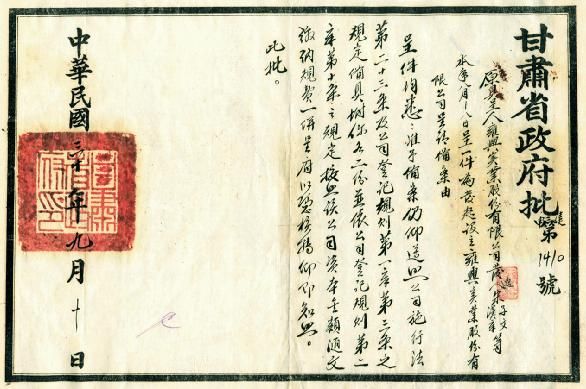 甘肅省政府批 建第1410號
原具呈人雍興實業股份有限公司發起人宋子文等
本年八月十八日呈一件為發起設立雍興實業股份有
限公司呈請備案由
呈件均悉准予備案仍仰遵照公司施行法
第二十三條及公司登記規則第一章第三條之
規定備具附件各二份並依公司登記規則第二
章第十條之規定按照該公司資本全額
繳納規費一併呈府以憑核轉仰即知照。
此批。
中華民國三十年九月十日
甘肅省政府印